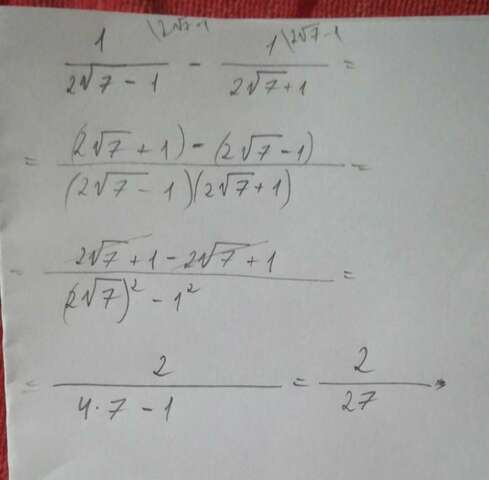 1 \2√7+1 1 \2√7-1
2√7 - 1 - 2√7+1 =
= (2√7 + 1) - (2√7 - 1)
(2√7 - 1)(2√7+1) =
= 2√7 + 1 - 2√7 + 1
(2√7)² - 1² =
= 2 = 2
4·7 - 1 27